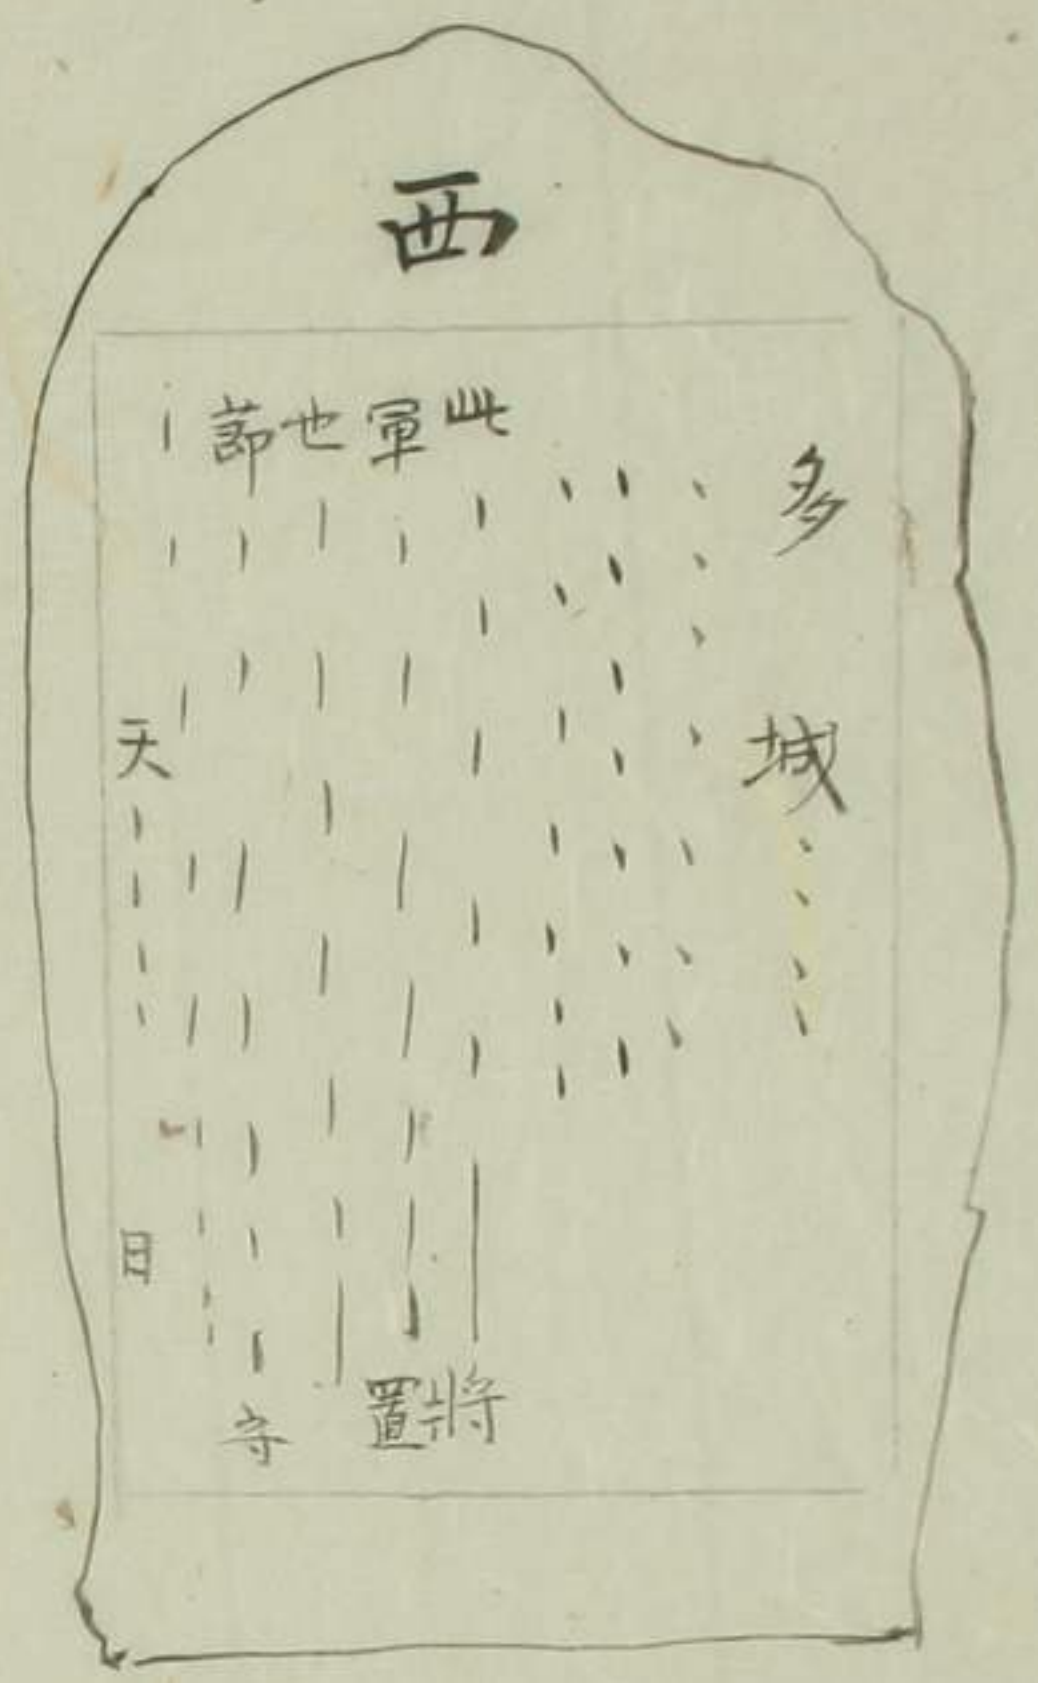 西
多城
此將
軍置
也
節守
天日